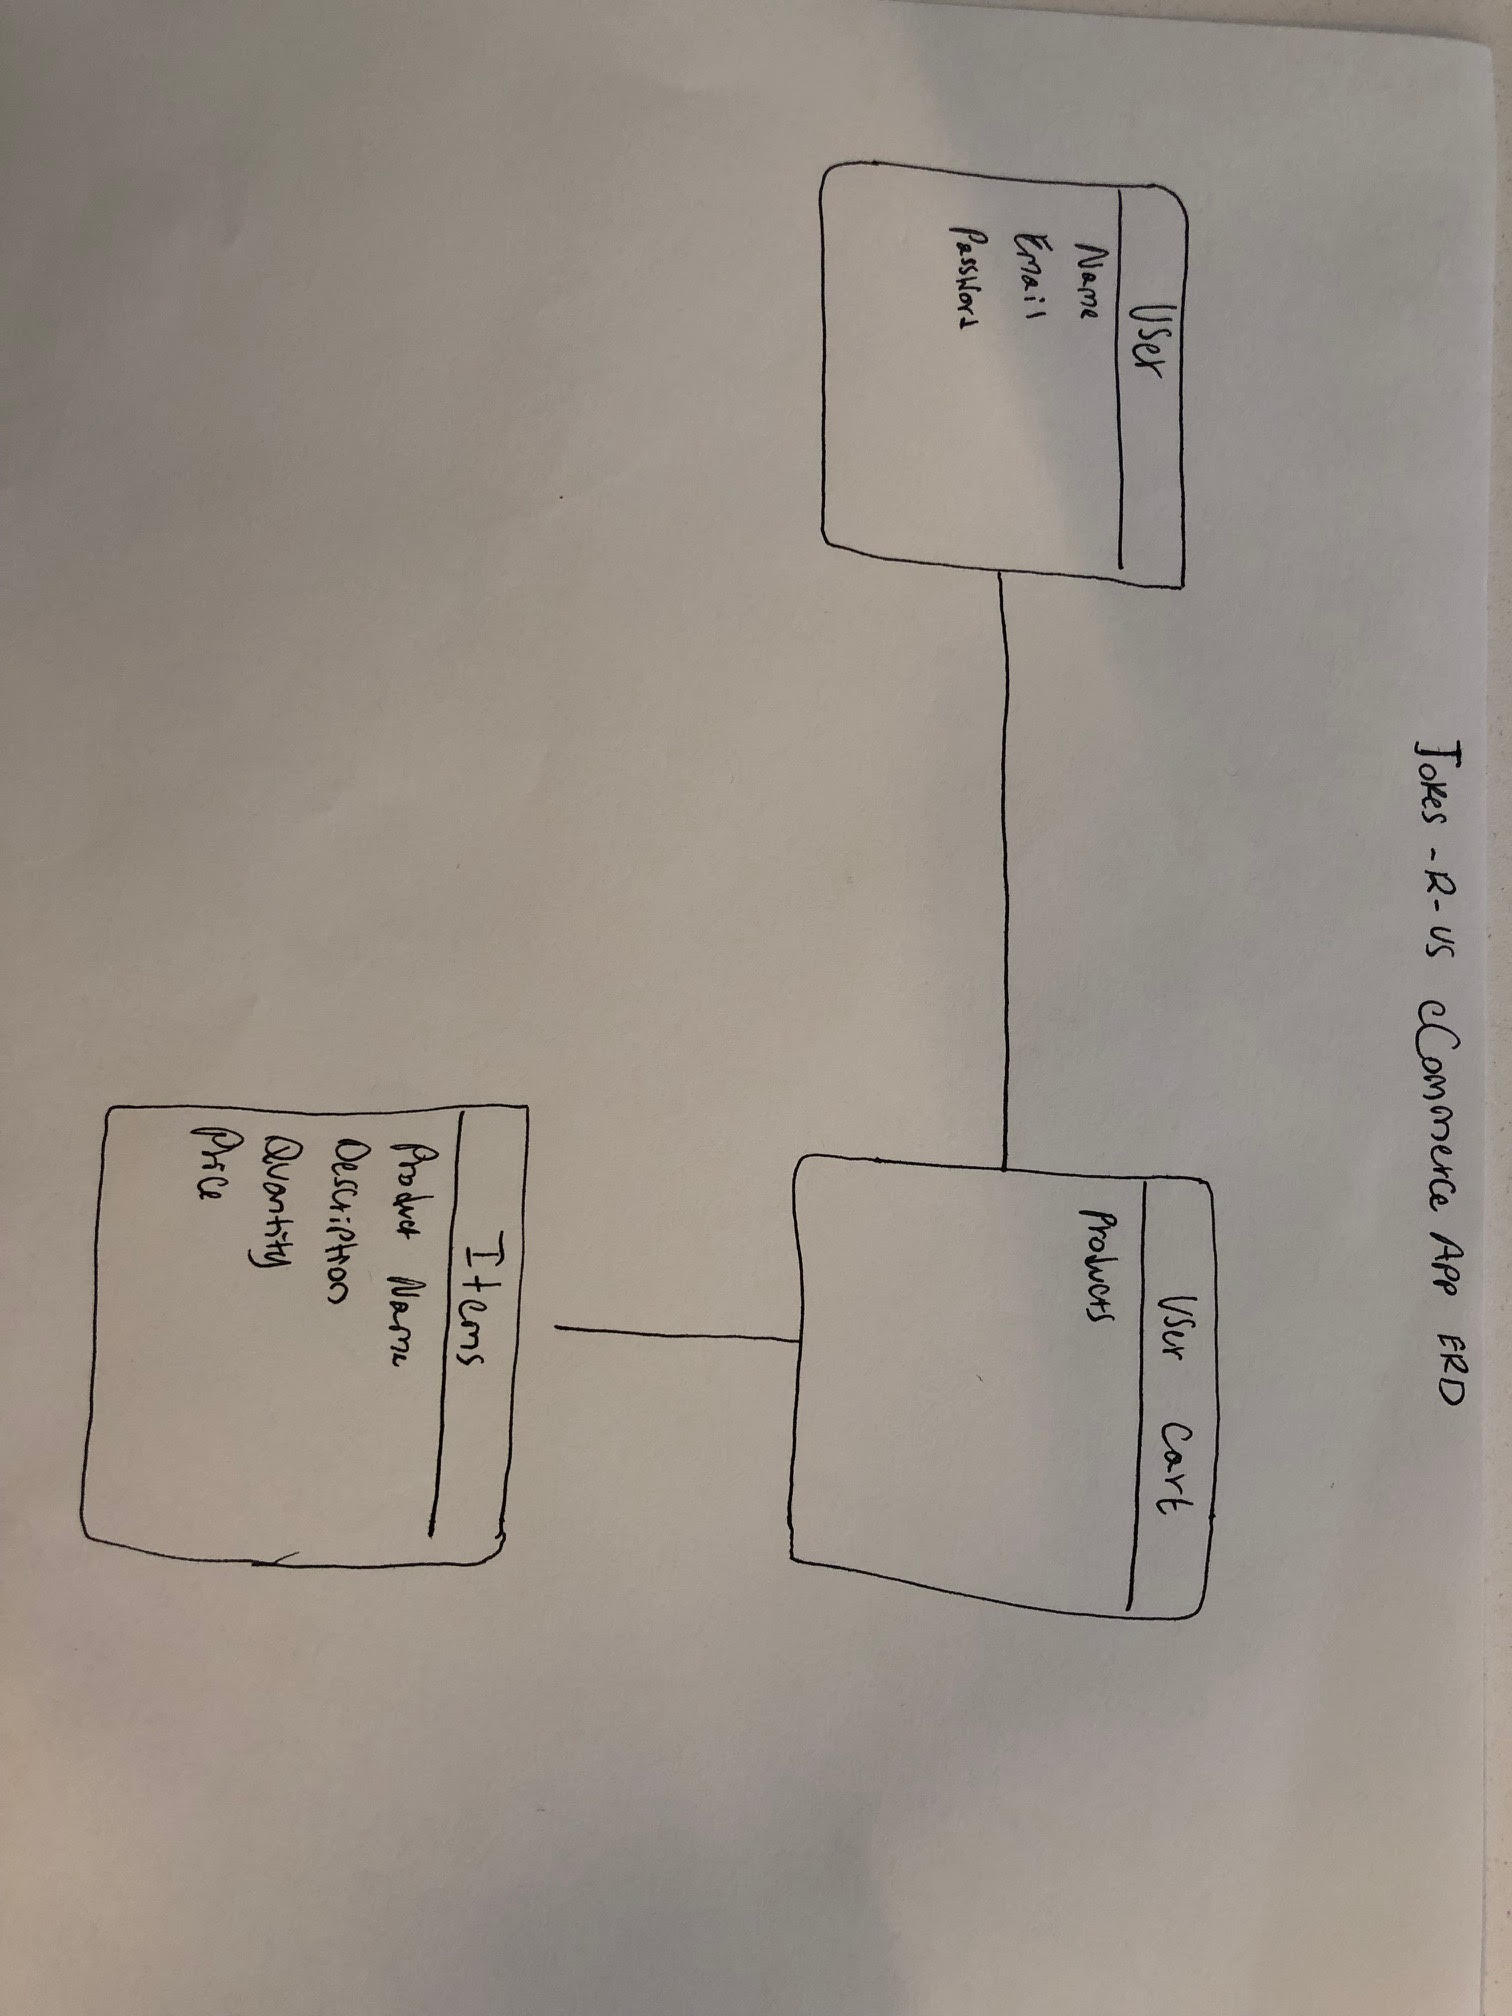 Jokes-R-US eCommerce App ERD
User
Name
Email
Password
User Cart
Products
Items
Product Name
Description
Quantity
Price